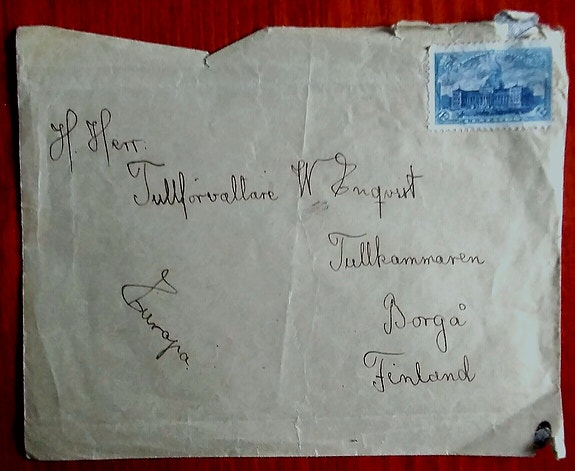 H. Herr.
Tullförvaltare W Enqvist
Tullkammaren
Borgå
Finland
Europa.